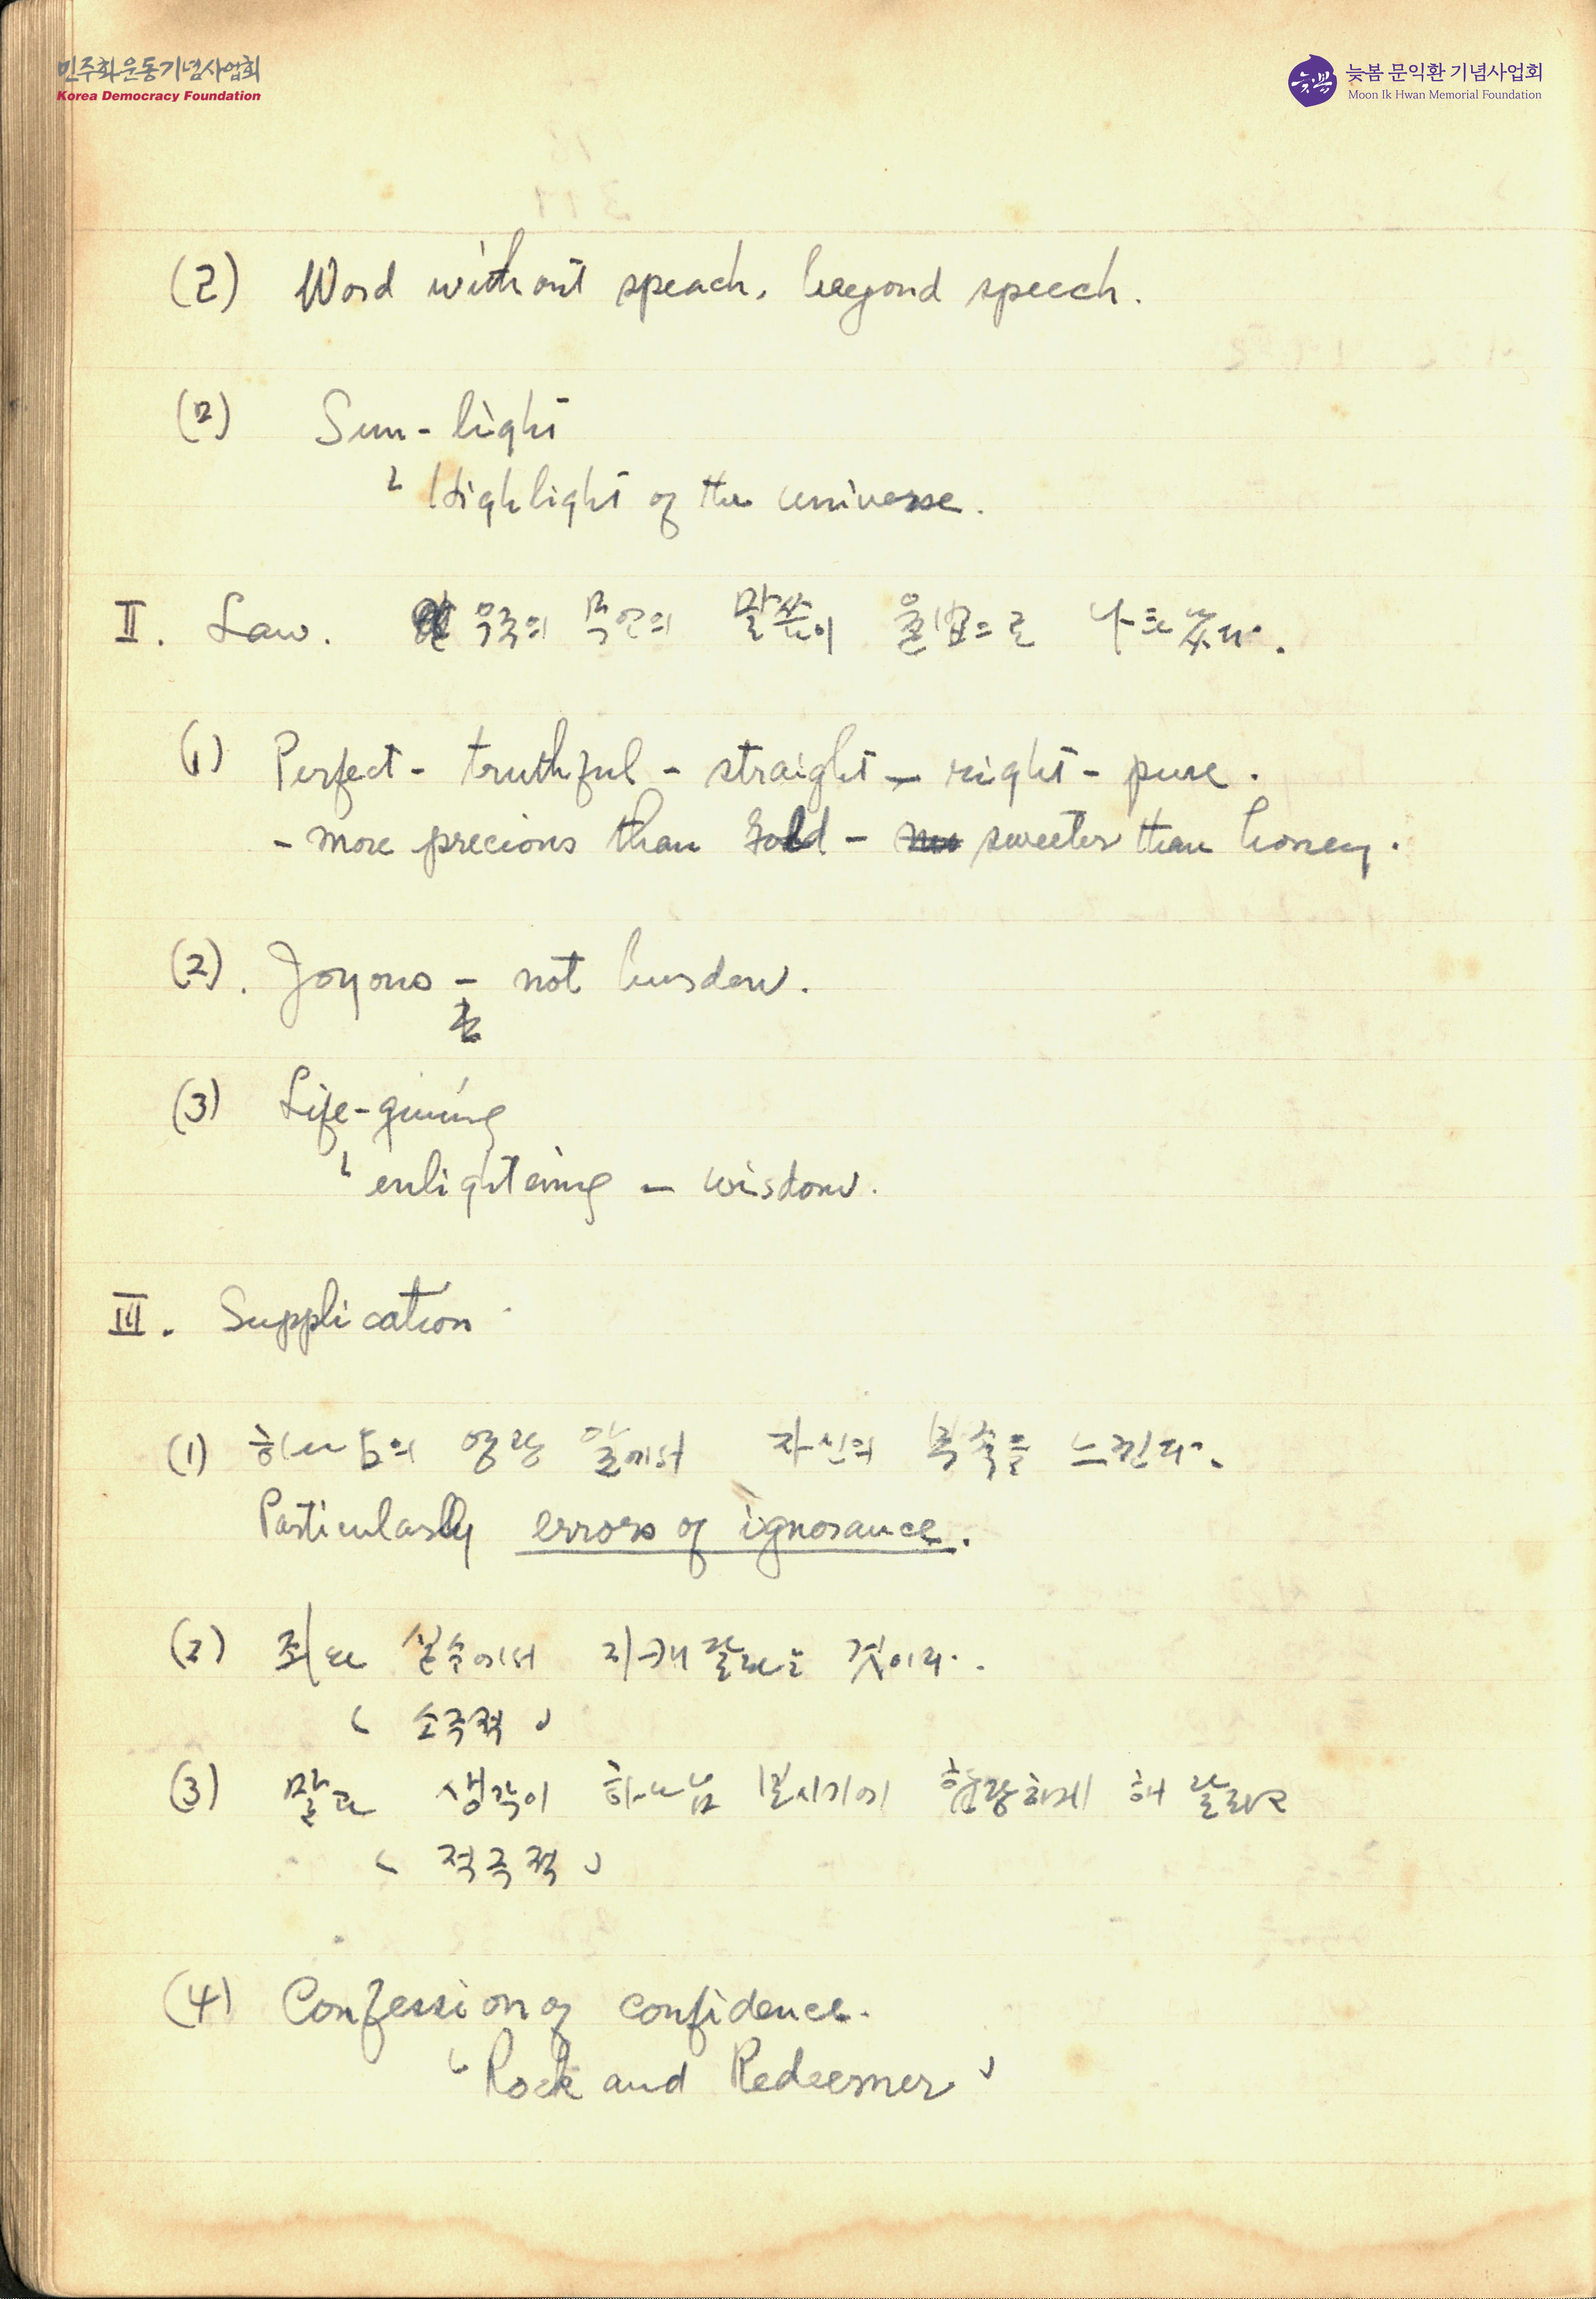 민주화운동기념사업회
Korea Democracy Foundation
늦봄 문익환 기념사업회
Moon Ik Hwan Memorial Foundation
(2) Word without speach, beyond speech.
(2) Sun-light
Highlight of the universe.
II. Law. 우주의 묵언의 말씀이 율법으로 나타났다.
(1) Perfect - truthful - straight - right - pure.
- more precious than gold - sweeter than honey.
(2). Joyous - not burden.
(3) Life-giving
enlightening - wisdom.
III. Supplication.
(1) 하나님의 영광 앞에서 자신의 부족을 느낀다.
Particularly errors of ignorance.
(2) 죄와 실수에서 지켜 달라는 것이다.
( 소극적 )
(3) 말과 생각이 하나님 보시기에 합당하게 해 달라고
( 적극적 )
(4) Confession of confidence.
"Rock and Redeemer"